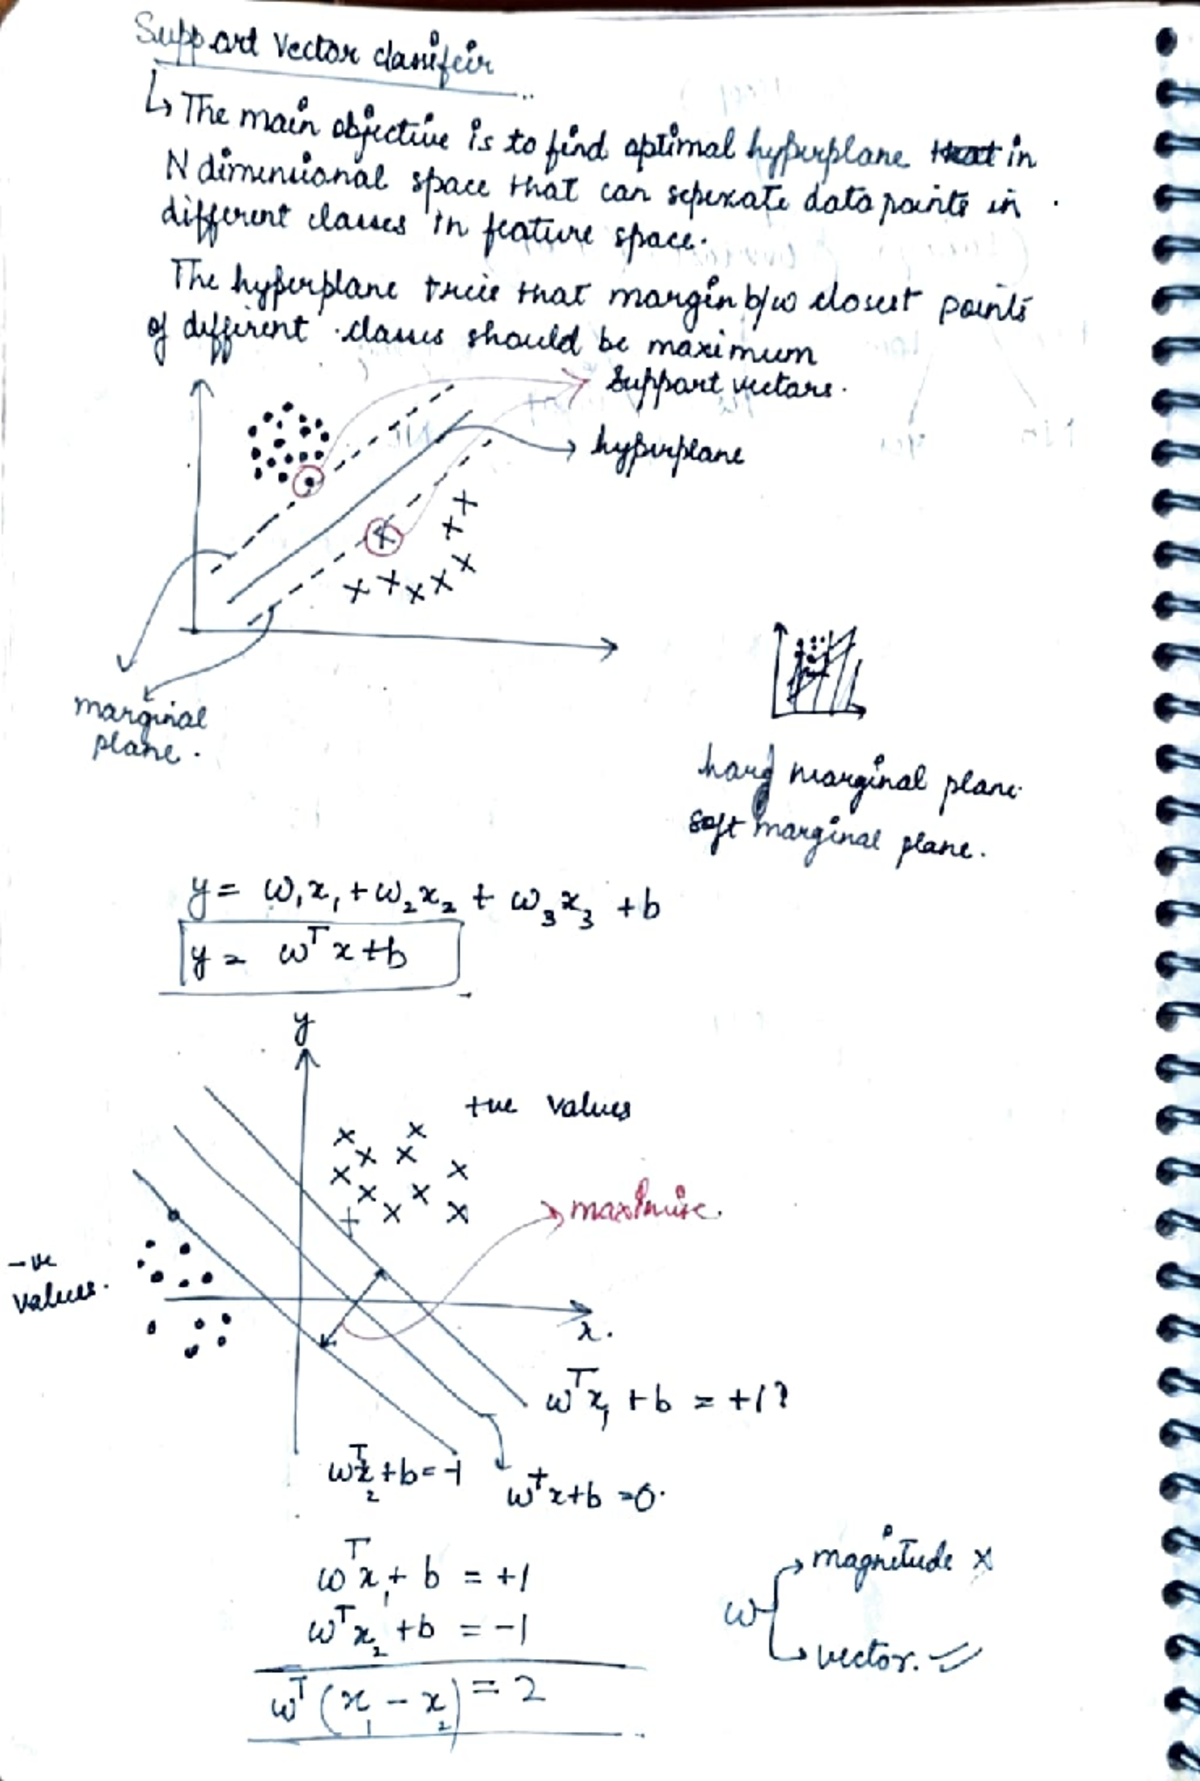 Support Vector classifeir
↳ The main objective is to find optimal hyperplane that in
N dimensional space that can seperate data points in
different classes in feature space.
The hyperplane tries that margin b/w closest points
of different classes should be maximum
support vectors.
hyperplane
marginal
plane.
hard marginal plane
soft marginal plane.
y = ω₁x₁ + ω₂x₂ + ω₃x₃ + b
y = ωᵀx + b
y
+ve values
maximise.
-ve
values.
x.
ωᵀx₁ + b = +1?
ωᵀx₂ + b = -1
ωᵀx + b = 0.
ωᵀx₁ + b = +1
ωᵀx₂ + b = -1
ωᵀ(x₁ - x₂) = 2
magnitude x
ω
vector. ✓